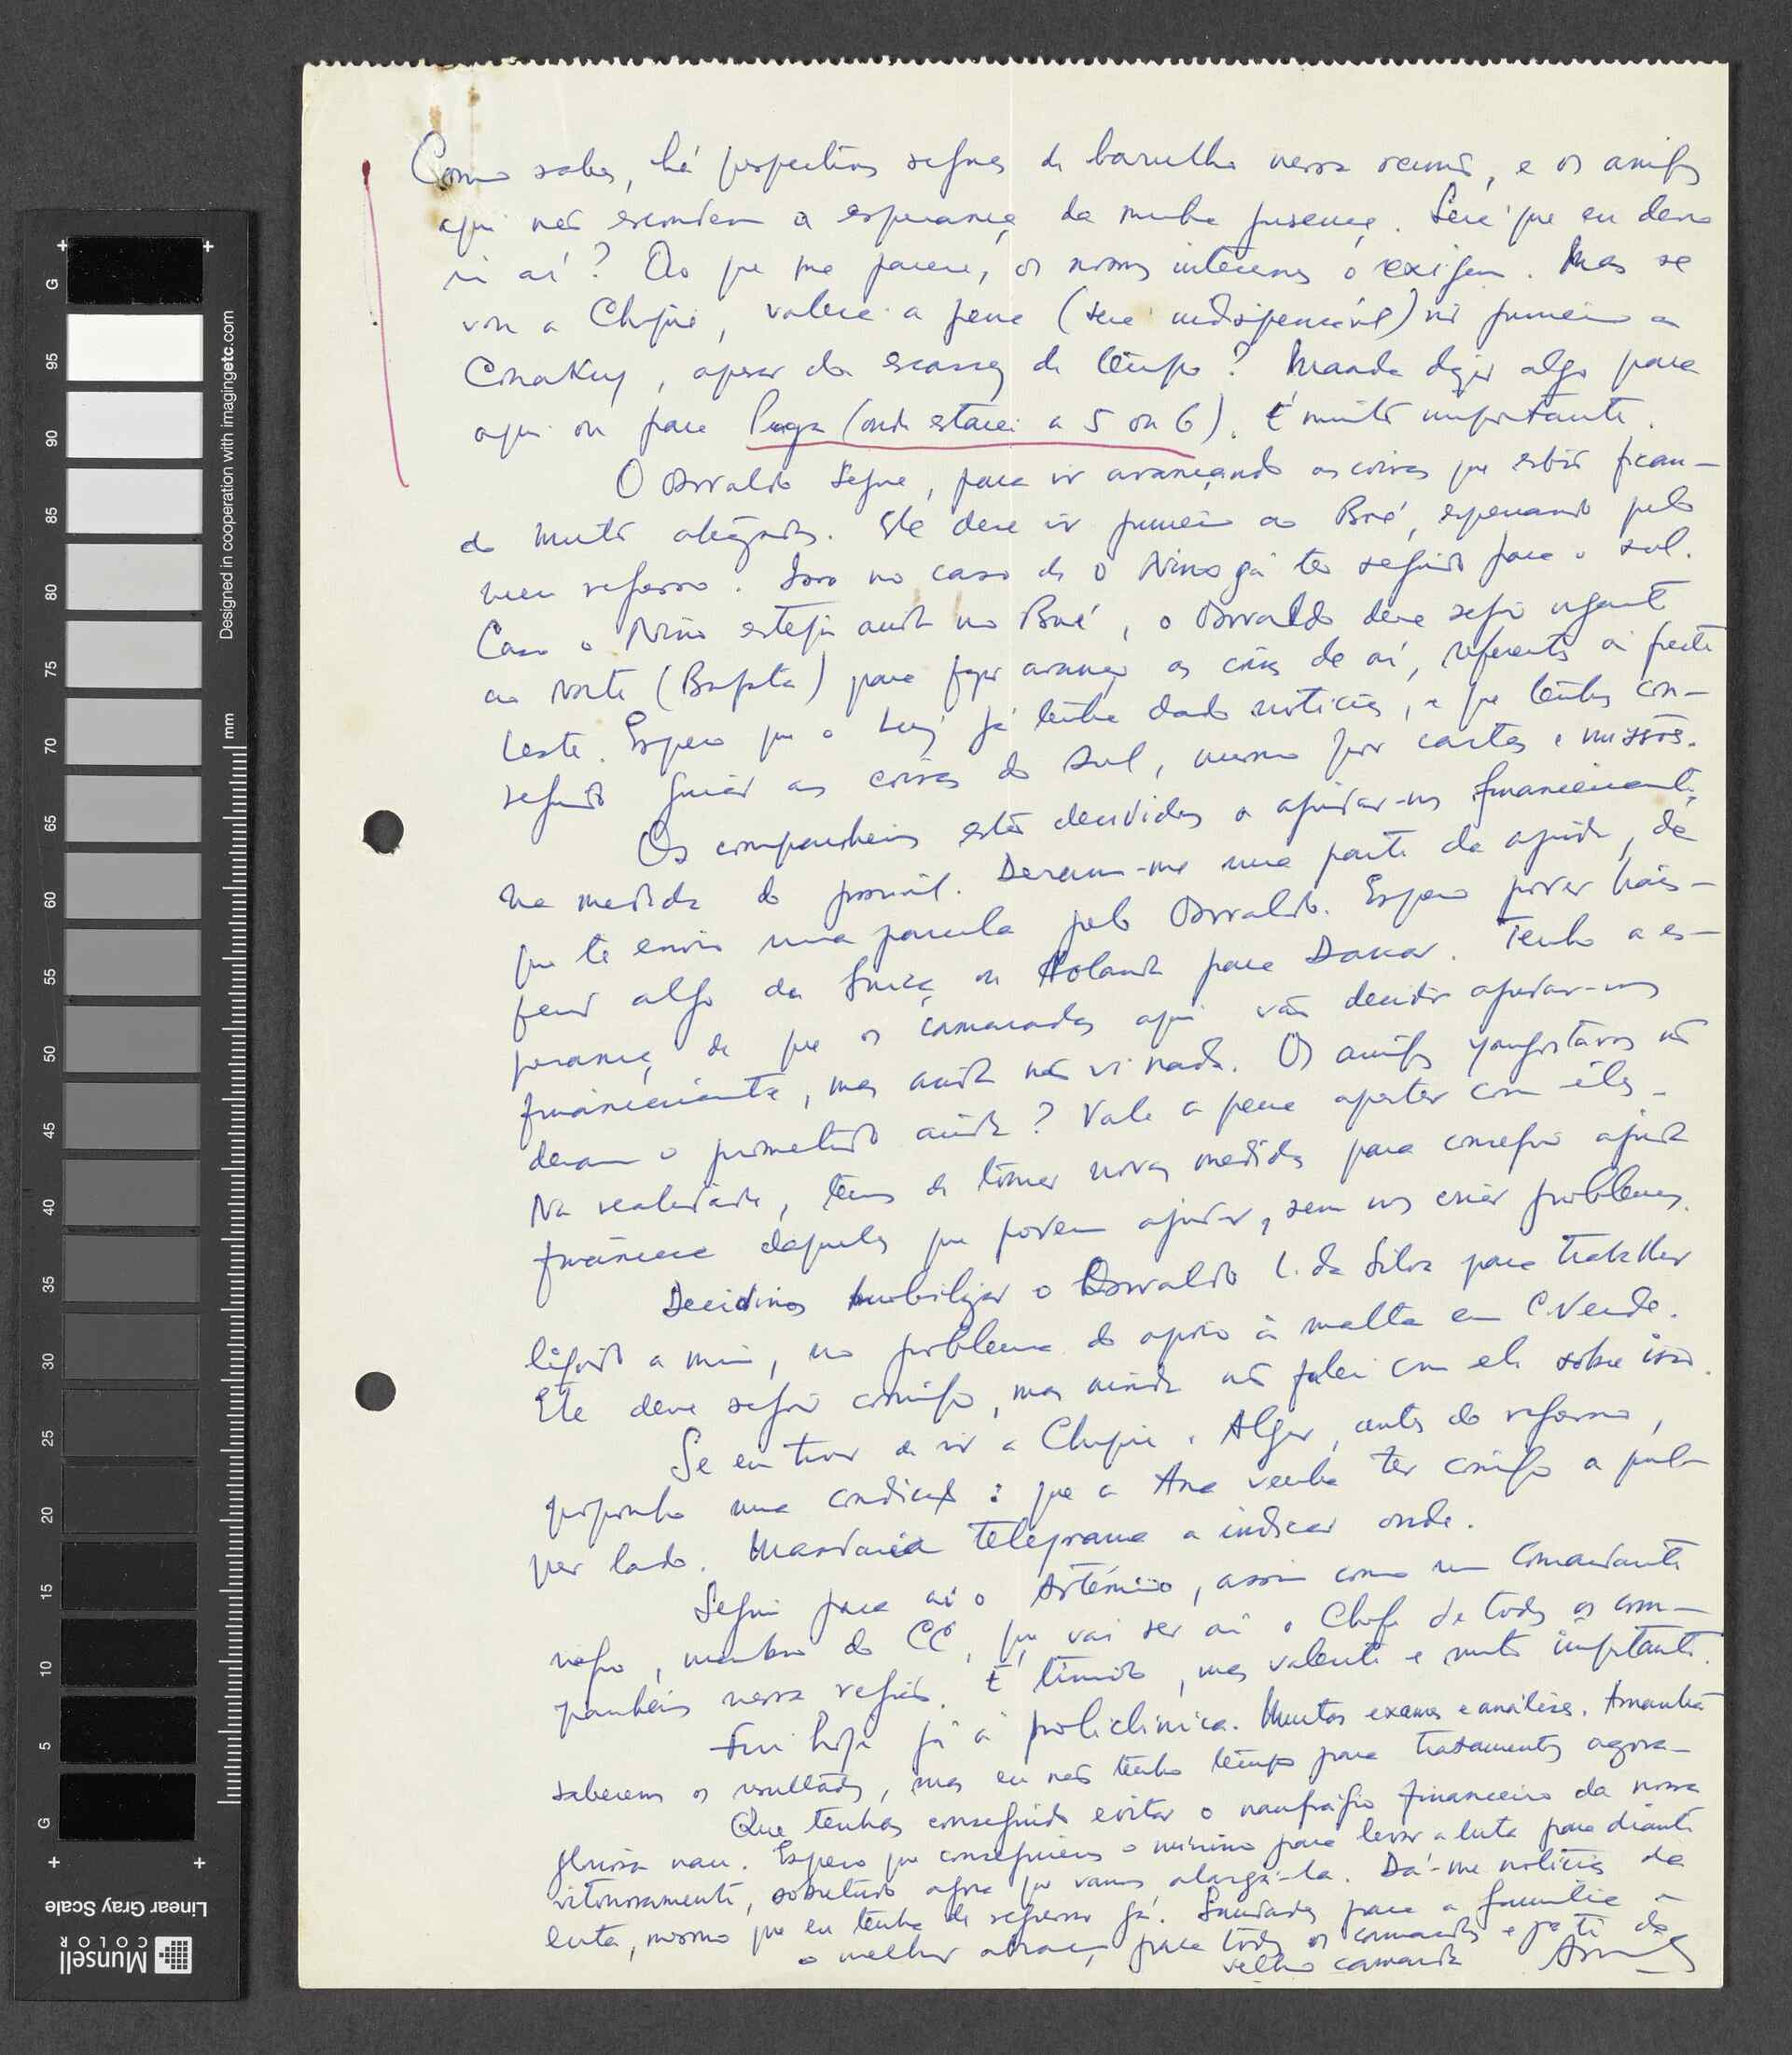 Como sabes, há perspectivas seguras de barulho nessa reunião, e os amigos
aqui não escondem a esperança da minha presença. Será que eu devo
ir aí? Ao que me parece, os nossos interesses o exigem. Mas se
vou a Chipre, valerá a pena (será indispensável) ir primeiro a
Conakry, apesar da escassez de tempo? Manda dizer algo para
aqui ou para Praga (onde estarei a 5 ou 6). É muito importante.
O Osvaldo segue, para ir avançando as coisas que estão fican-
do muito atrazadas. Ele deve ir primeiro ao Boé, esperando pelo
meu regresso. Isso no caso de o Nino já ter seguido para o sul.
Caso o Nino esteja ainda no Boé, o Osvaldo deve seguir urgente
ao norte ( ) para fazer avançar as coisas de aí, referentes à frente
Leste. Espero que o Luiz já tenha dado notícias, e que tenhas con-
seguido guiar as coisas do Sul, mesmo por cartas e missões.
Os companheiros estão decididos a ajudar-nos financeiramente,
na medida do possível. Deram-me uma parte da ajuda, da
que te envio uma parcela pelo Osvaldo. Espero poder trans-
ferir algo da Suiça ou Holanda para Dakar. Tenho a es-
perança de que os camaradas aqui vão decidir ajudar-nos
financeiramente, mas ainda não vi nada. Os amigos yougoslavos não
deram o prometido ainda? Vale a pena apertar com êles.
Na realidade, temos de tomar novas medidas para conseguir ajuda
financeira daqueles que podem ajudar, sem nos criar problemas.
Decidimos mobilizar o Osvaldo L. da Silva para trabalhar
ligado a mim, no problema do apoio à malta em C. Verde.
Ele deve seguir comigo, mas ainda não falei com ele sobre isso.
Se eu tiver de ir a Chipre e Alger, antes do regresso,
proponho uma condição: que a Ana venha ter comigo a qual-
quer lado. Mandarei telegrama a indicar onde.
Segue para aí o Artémio, assim como um Comandante
negro, membro do CC, que vai ser aí o Chefe de todos os com-
panheiros nessa região. É tímido, mas valente e muito importante.
Fui hoje já à policlínica. Muitos exames e análises. Amanhã
saberemos os resultados, mas eu não tenho tempo para tratamentos agora.
Que tenhas conseguido evitar o naufrágio financeiro da nossa
gloriosa nau. Espero que conseguiremos o mínimo para levar a luta para diante
vitoriosamente, sobretudo agora que vamos alargá-la. Dá-me notícias da
luta, mesmo que eu tenha de regressar já. Saudades para a família e
o melhor abraço para todos os camaradas e p.ª ti do
velho camarada